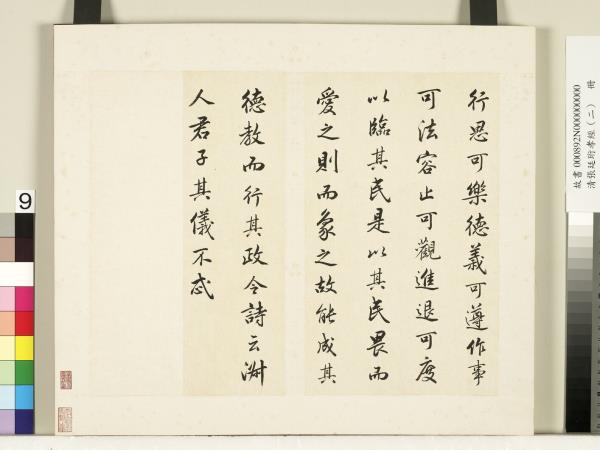 行思可樂德義可遵作事
可法容止可觀進退可度
以臨其民是以其民畏而
愛之則而象之故能成其
德教而行其政令詩云淑
人君子其儀不忒
故書 000892N000000000
清張廷玙孝經(二) 冊
9